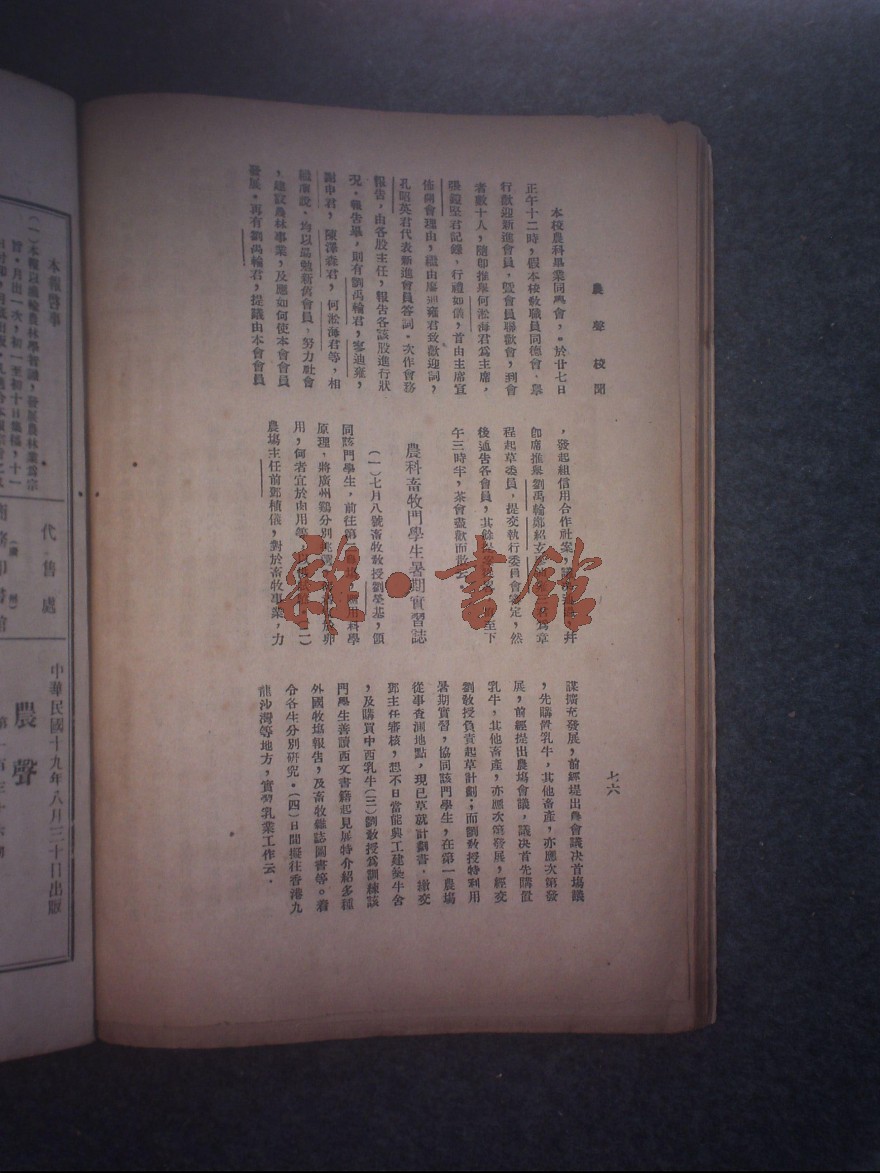 農聲校聞
七六
本校農科畢業同學會,於廿七日
正午十二時,假本校教職員同德會,舉
行歡迎新進會員,暨會員聯歡會,到會
者數十人,隨卽推舉何淞海君爲主席,
張鏡堅君記錄,行禮如儀,首由主席宣
佈開會理由,繼由廖迪雍君致歡迎詞,
孔昭英君代表新進會員答詞。次作會務
報告,由各股主任,報告各該股進行狀
況。報告畢,則有劉禹輪君,廖迪雍,
謝申君,陳澤森君,何淞海君等,相
繼演說。均以勗勉新舊會員,努力社會
,建設農林事業,及應如何使本會會員
發展。再有劉禹輪君,提議由本會會員
,發起組信用合作社案,
卽席推舉劉禹輪鄺紹玄 爲章
程起草委員,提交執行委員會 定,然
後通告各會員,其餘 至下
午三時半,茶會盡歡而散云
農科畜牧門學生暑期實習誌
(一)七月八號畜牧敎授劉榮基,領
同該門學生,前往第一農塲,應用科學
原理,將廣州鷄分別 卵
用,何者宜於肉用等 (二)
農塲主任前鄧植儀,對於畜牧事業,力
謀擴充發展,前經提出農會議决首塲議
,先購置乳牛,其他畜產,亦應次第發
展,前經提出農塲會議,議决首先購置
乳牛,其他畜產,亦應次第發展,經交
劉敎授負責起草計劃;而劉敎授特利用
暑期實習,協同該門學生,在第一農塲
從事查測地點,現已草就計劃書。繳交
鄧主任審核,想不日當能與工建築牛舍
,及購買中西乳牛(三)劉敎授爲訓練該
門學生善讀西文書籍起見展特介紹多種
外國牧塲報告,及畜牧雜誌圖書等。着
令各生分別研究。(四)日間擬往香港九
龍沙灣等地方,實習乳業工作云。
雜·書館
中華民國十九年八月三十日出版
農聲
代售處
本報啓事
(一)本報以灌輸農林學智識,發展農林業爲宗
旨。月出一次,初一至初十日集稿,十一